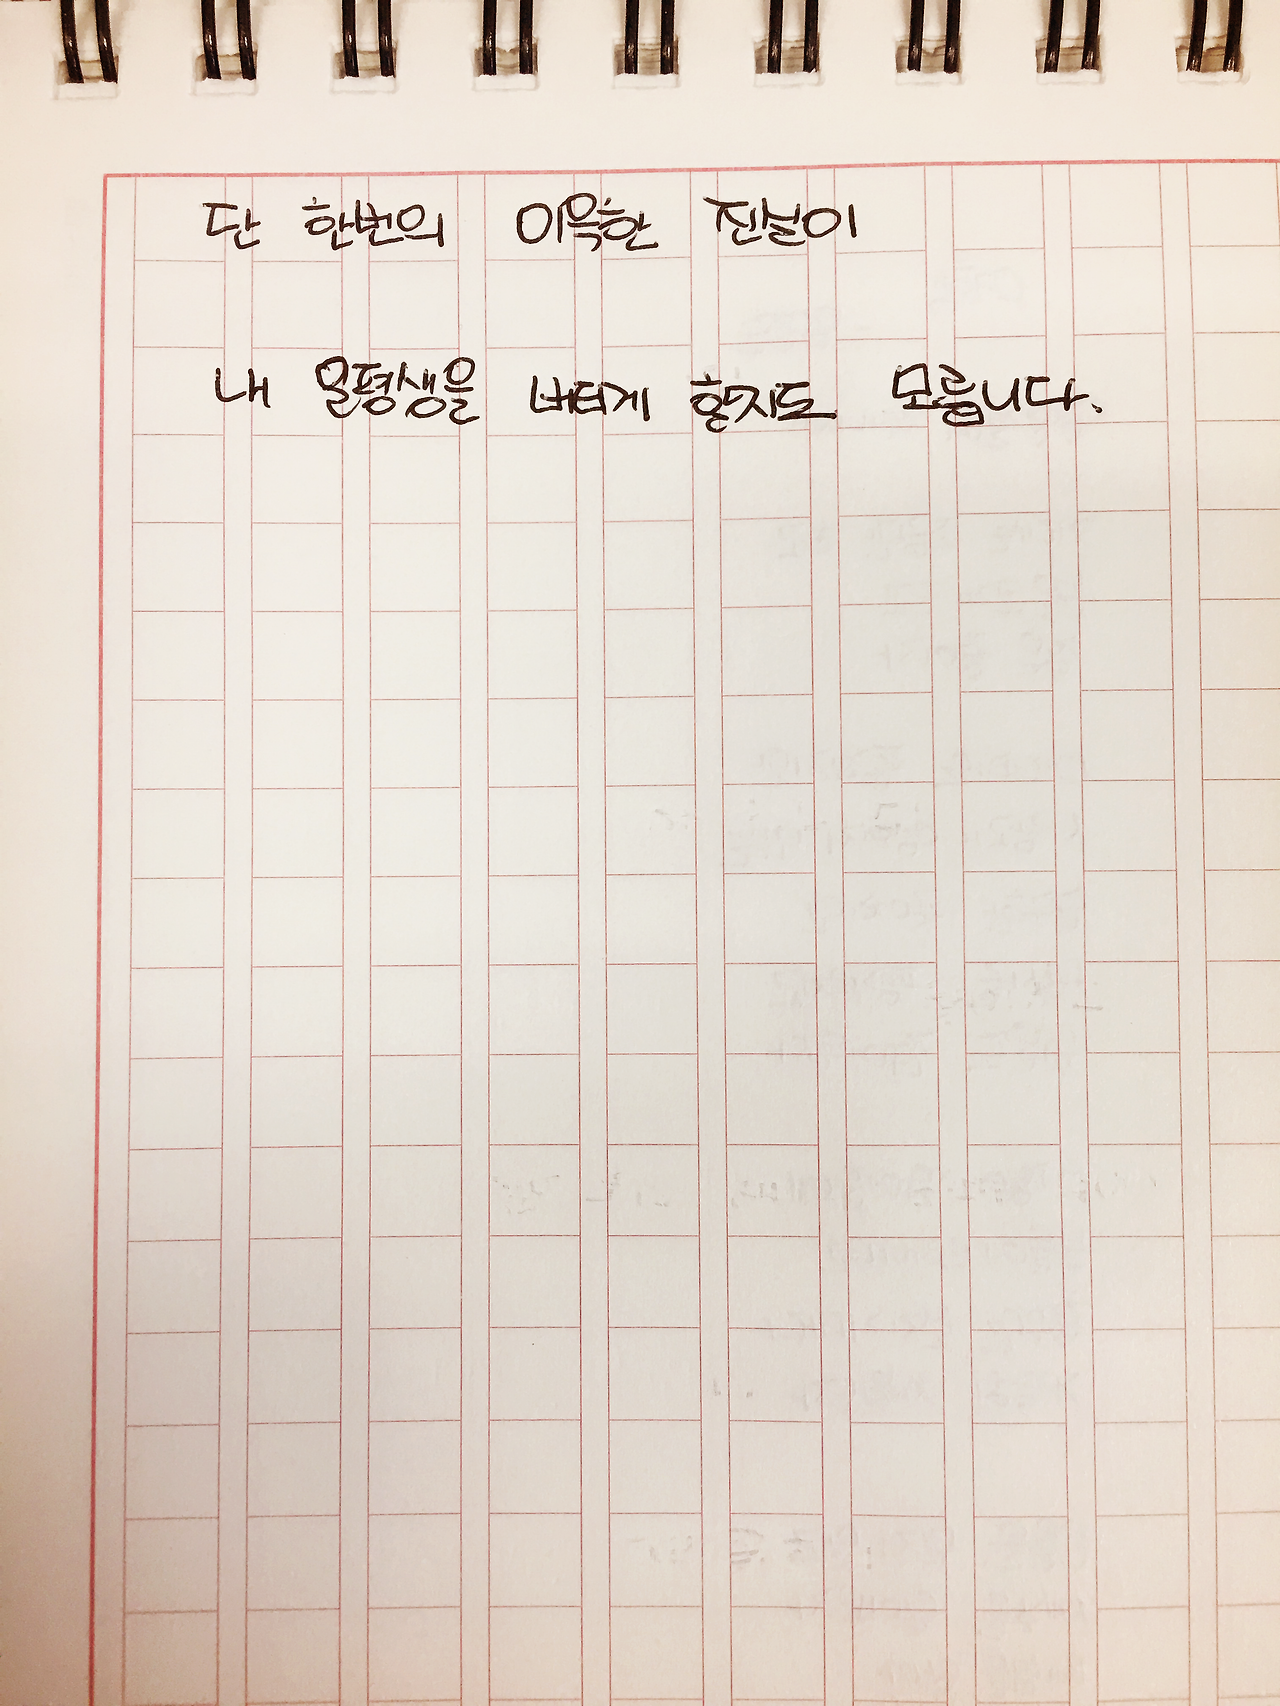 단 한번의 이윽한 진실이
내 일평생을 버티게 할지도 모릅니다.